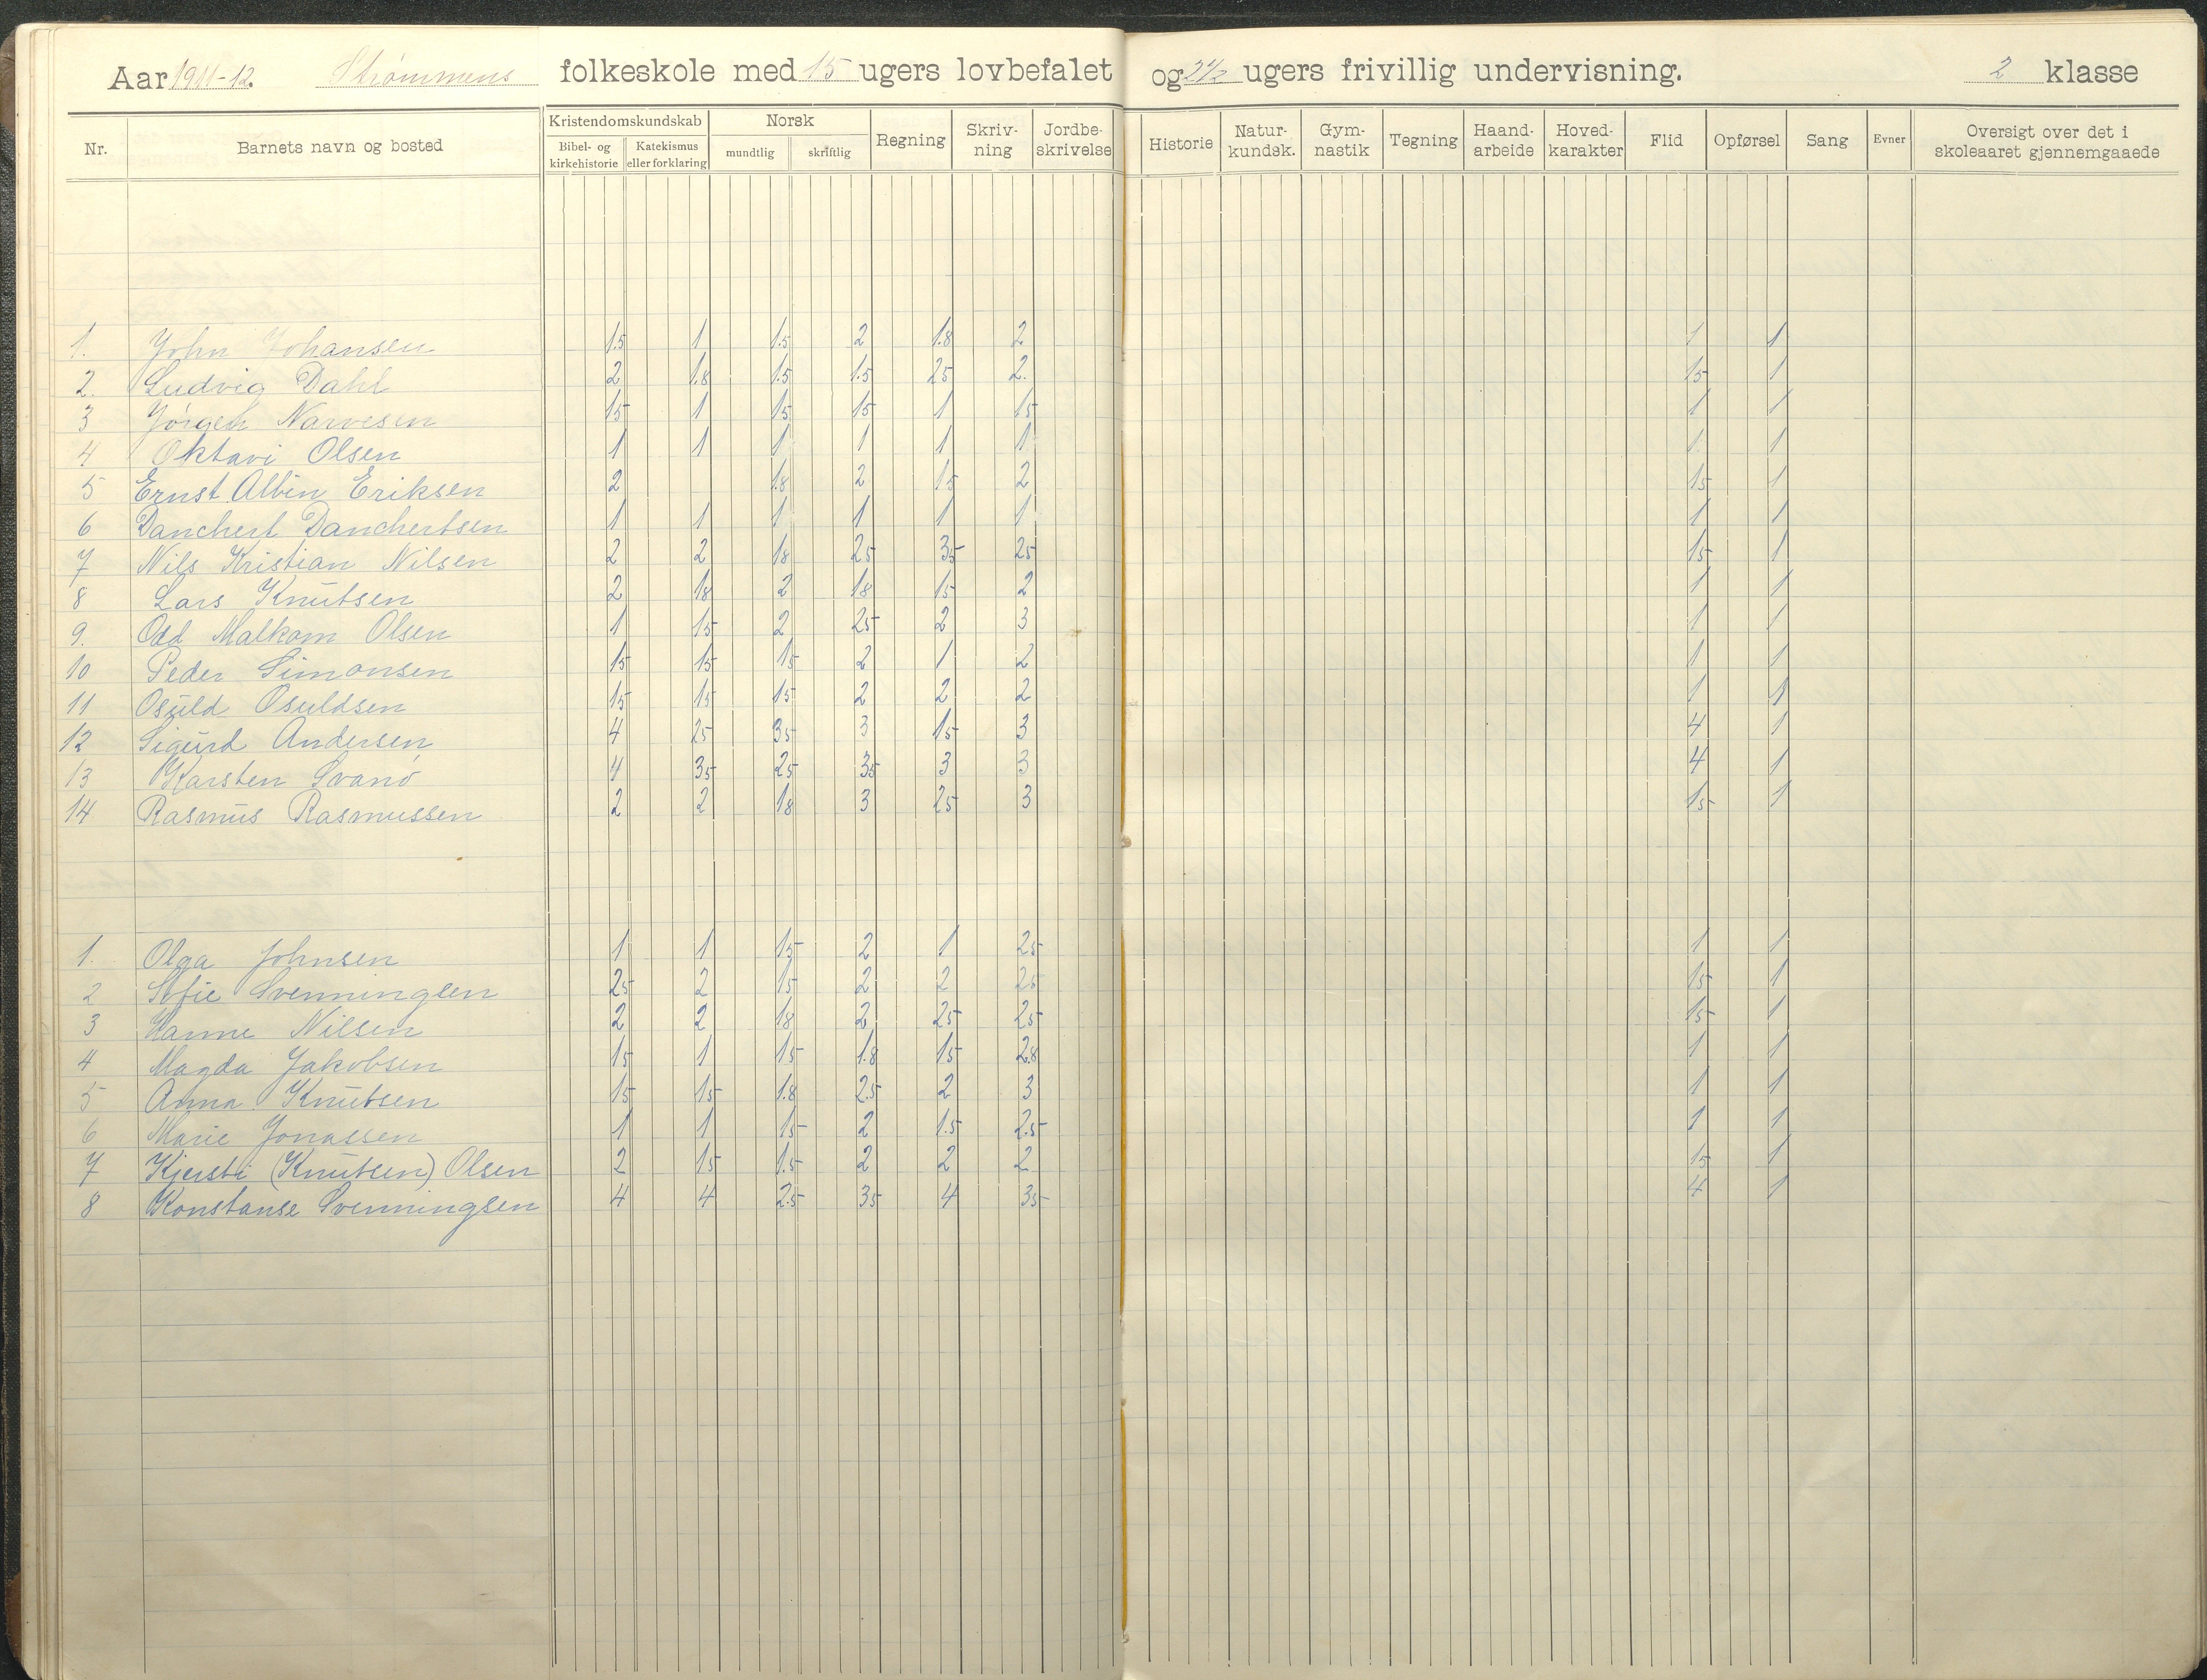 Aar 1911-12. Strømmens folkeskole med 15 ugers lovbefalet og 2 1/2 ugers frivillig undervisning. 2 klasse
Nr. Barnets navn og bosted Kristendomskundskab Bibel- og kirkehistorie Katekismus eller forklaring Norsk mundtlig skriftlig Regning Skriv-ning Jordbe-skrivelse Historie Natur-kundsk. Gym-nastik Tegning Haand-arbeide Hoved-karakter Flid Opførsel Sang Evner Oversigt over det i skoleaaret gjennemgaaede
1. John Johansen 1.5 1 1.5 2 1.8 2 1 1
2. Ludvig Dahl 2 1.8 1.5 1.5 25 2. 15 1
3 Jørgen Narvesen 15 1 15 15 1 15 1 1
4 Oktavi Olsen 1 1 1 1 1 1 1 1
5 Ernst Albin Eriksen 2 1.8 2 15 2 15 1
6 Danchert Danchertsen 1 1 1 1 1 1 1 1
7 Nils Kristian Nilsen 2 2 18 25 35 25 15 1
8 Lars Knutsen 2 18 2 18 15 2 1 1
9. Odd Malkom Olsen 1 15 2 25 2 3 1 1
10 Peder Simonsen 15 15 15 2 1 2 1 1
11 Osuld Osuldsen 15 15 15 2 2 2 1 1
12 Sigurd Andersen 4 25 35 3 15 3 4 1
13 Karsten Svanö 4 35 25 35 3 3 4 1
14 Rasmus Rasmussen 2 2 18 3 25 3 15 1
1. Olga Johnsen 1 1 15 2 1 25 1 1
2 Sofie Svenningsen 25 2 15 2 2 25 15 1
3 Hanne Nilsen 2 2 18 2 25 25 15 1
4 Magda Jakobsen 15 1 15 1.8 15 2.8 1 1
5 Anna Knutsen 15 15 1.8 2.5 2 3 1 1
6 Marie Jonassen 1 1 15 2 1.5 2.5 1 1
7 Kjersti (Knutsen) Olsen 2 15 1.5 2 2 2 15 1
8 Konstanse Svenningsen 4 4 2.5 35 4 35 4 1